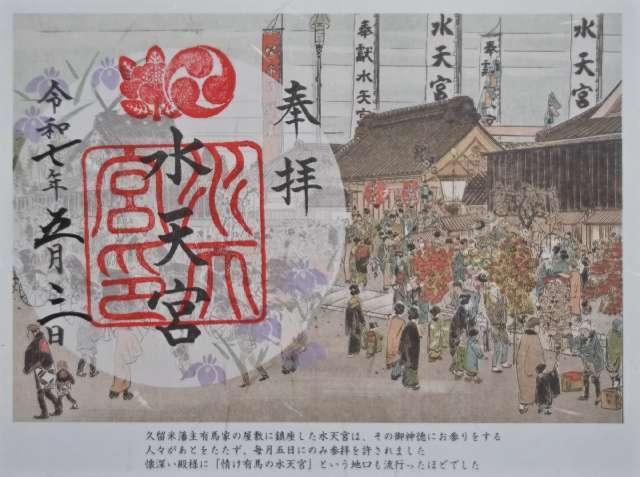 奉拝
水天宮
水天宮印
令和七年五月三日
奉獻水天宮
水天宮
水天宮
久留米藩主有馬家の屋敷に鎮座した水天宮は、その御神徳にお参りをする
人々があとをたたず、毎月五日にのみ参拝を許されました
懐深い殿様に「情け有馬の水天宮」という地口も流行ったほどでした